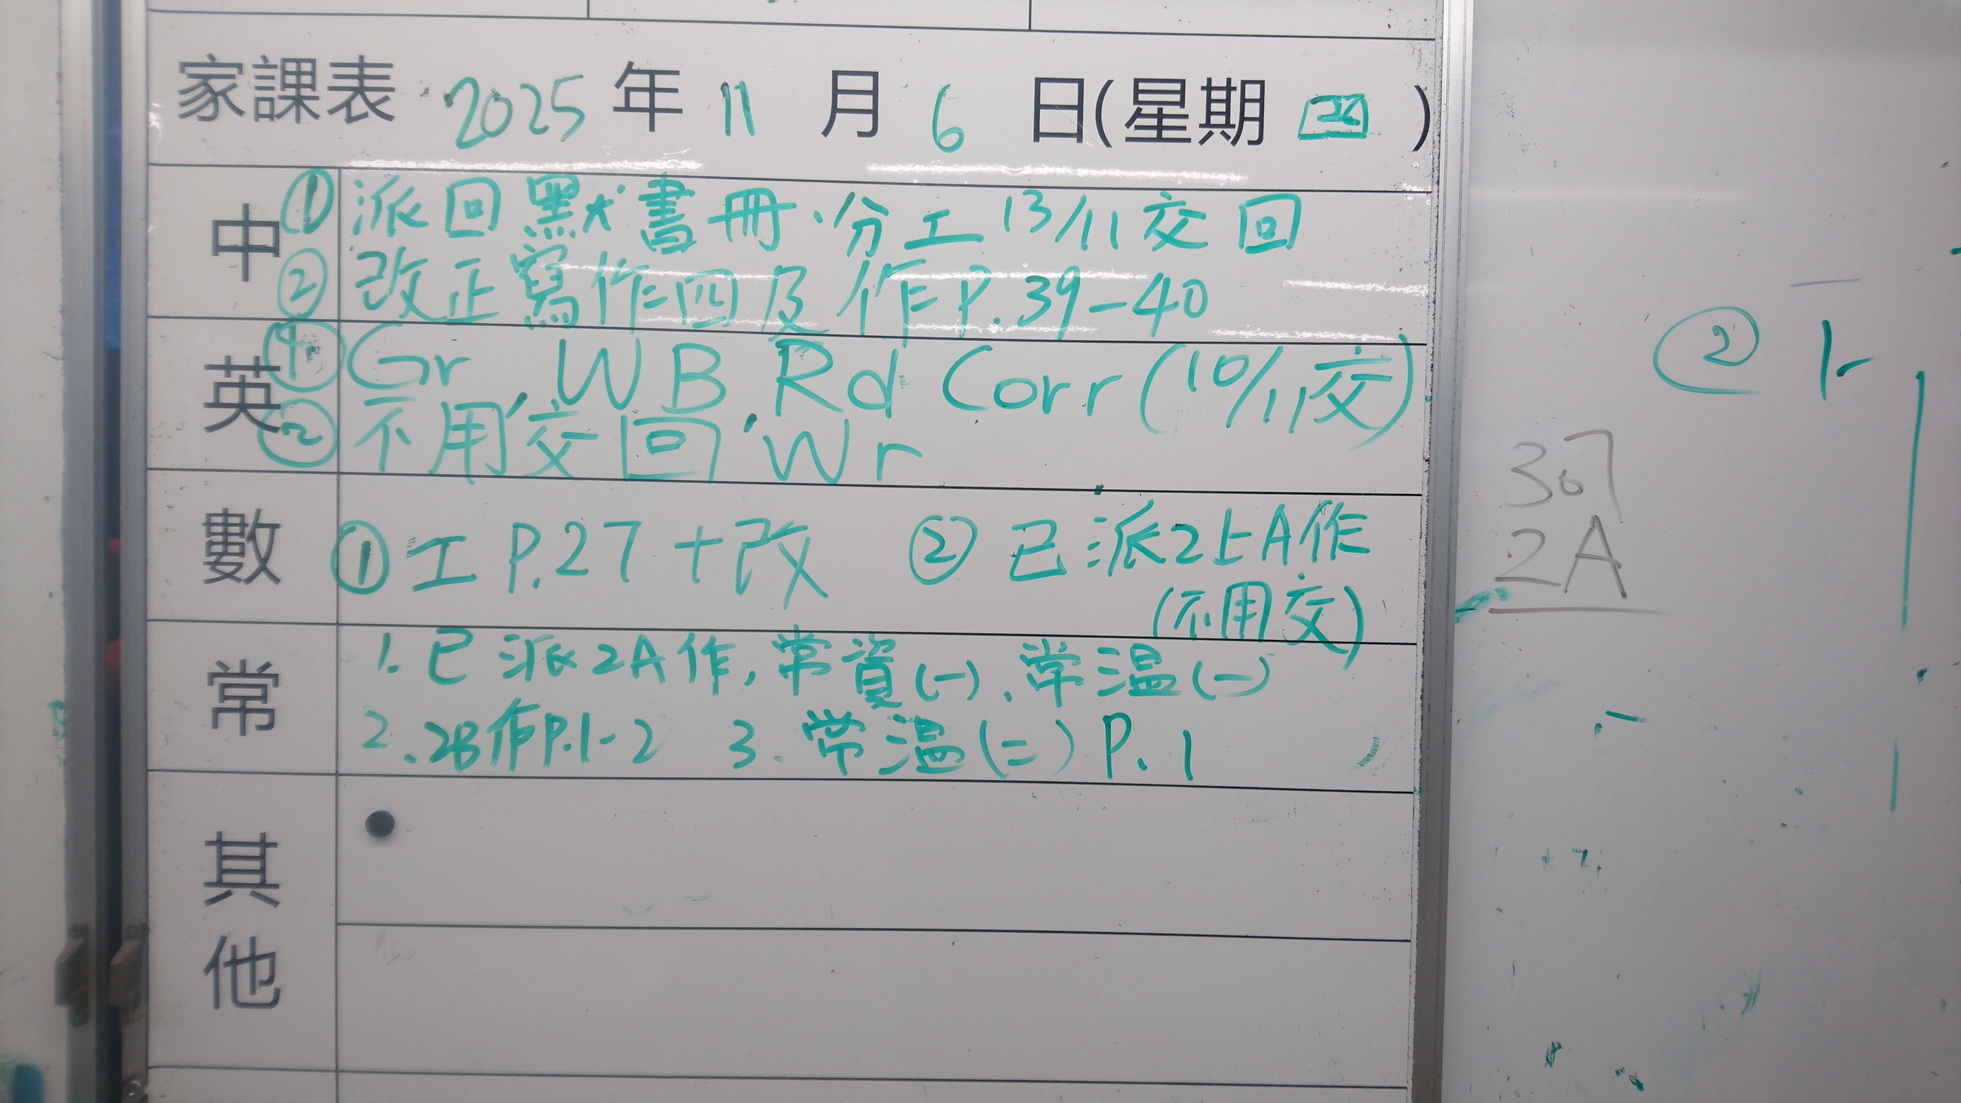 家課表 2025 年 11 月 6 日(星期 四 )
中 ① 派回默書冊、分工 13/11交回
② 改正寫作四及作P.39-40
英 Gr, WB, Rd Corr (10/11交)
② 不用交回 Wr
數 ① 工 P.27 +改 ② 已派2上A作
(不用交)
常 1. 已派2A作, 常資(一)、常溫(一)
2. 2B作P.1-2 3. 常溫(二) P. 1
其他
② 1.
307
2A